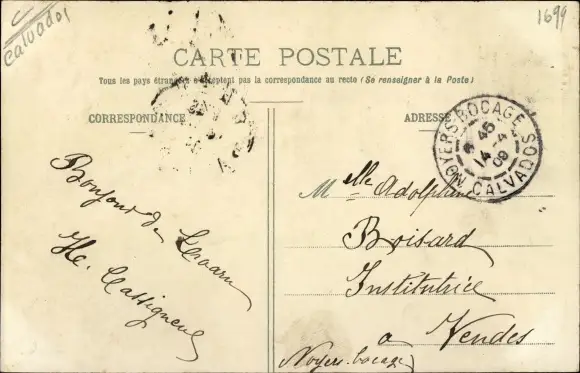 Calvados
1699
CARTE POSTALE
Tous les pays étrangers n'acceptent pas la correspondance au recto (Se renseigner à la Poste)
CORRESPONDANCE
ADRESSE
NOYERS-BOCAGE
8 45
14 -4
09
CALVADOS
Bonjour de
H.
Melle Adolphine
Boisard
Institutrice
a Vendes
Noyers-bocage